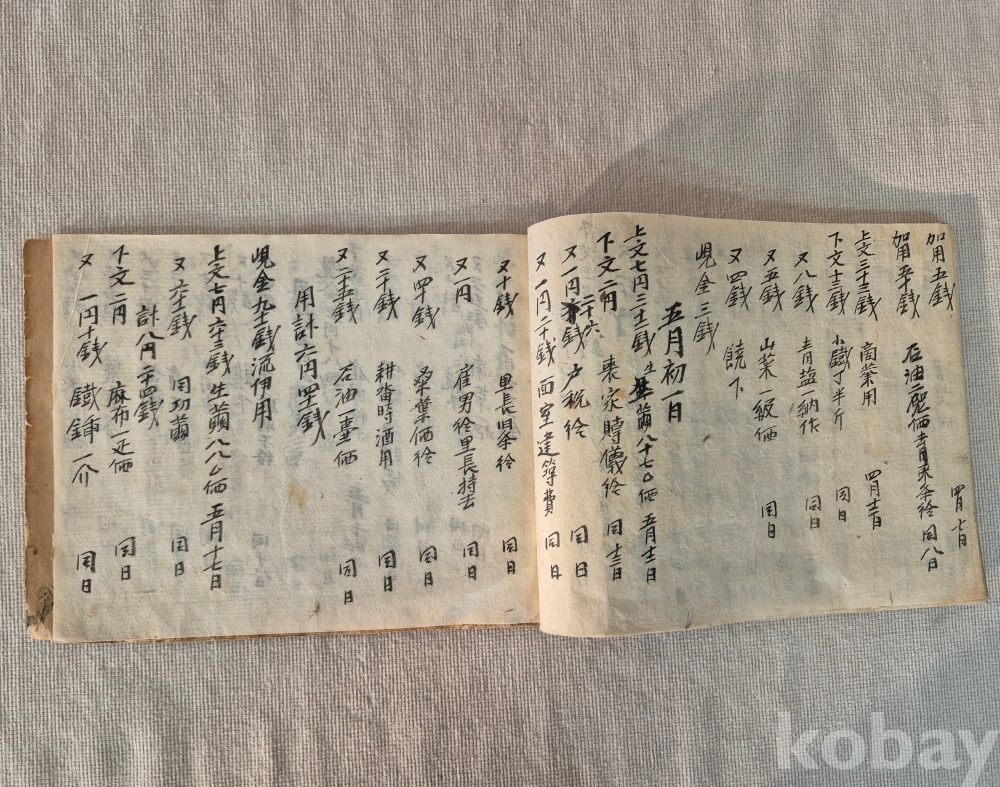 加用五銭 四月七日
加用五十銭 石油二 価 青木条 給 同八日
上文三十三銭 商業用 四月十三日
下文十三銭 小鐵丁半斤 同日
又八銭 青塩一納作 同日
又五銭 山菜一級価 同日
又四銭 饒下
現金三銭
五月初一日
上文七円二十三銭 生繭八十七 価 五月十三日
下文二円 喪家賻儀給 同十三日
又一円二十六銭 戸税給 同日
又一円二十銭 面室建築費 同日
又十銭 里長旧条給 同日
又一円 雇男給里長持去 同日
又四十銭 桑葉価給 同日
又二十銭 耕畓時酒用 同日
又二十五銭 石油一壷価 同日
用計六円四十一銭
現金九十銭流伊用
上文七円六十三銭 生繭八八 価 五月十七日
又六十一銭 同功繭 同日
計八円二十四銭
下文二円 麻布一疋価 同日
又一円十銭 鐵鍤一介 同日
kobay